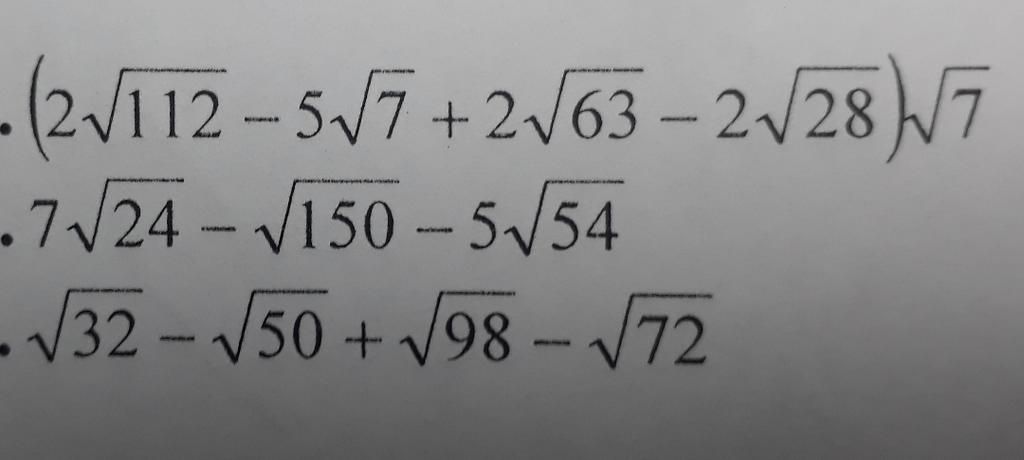 . (2√112 − 5√7 + 2√63 − 2√28)√7
. 7√24 − √150 − 5√54
. √32 − √50 + √98 − √72